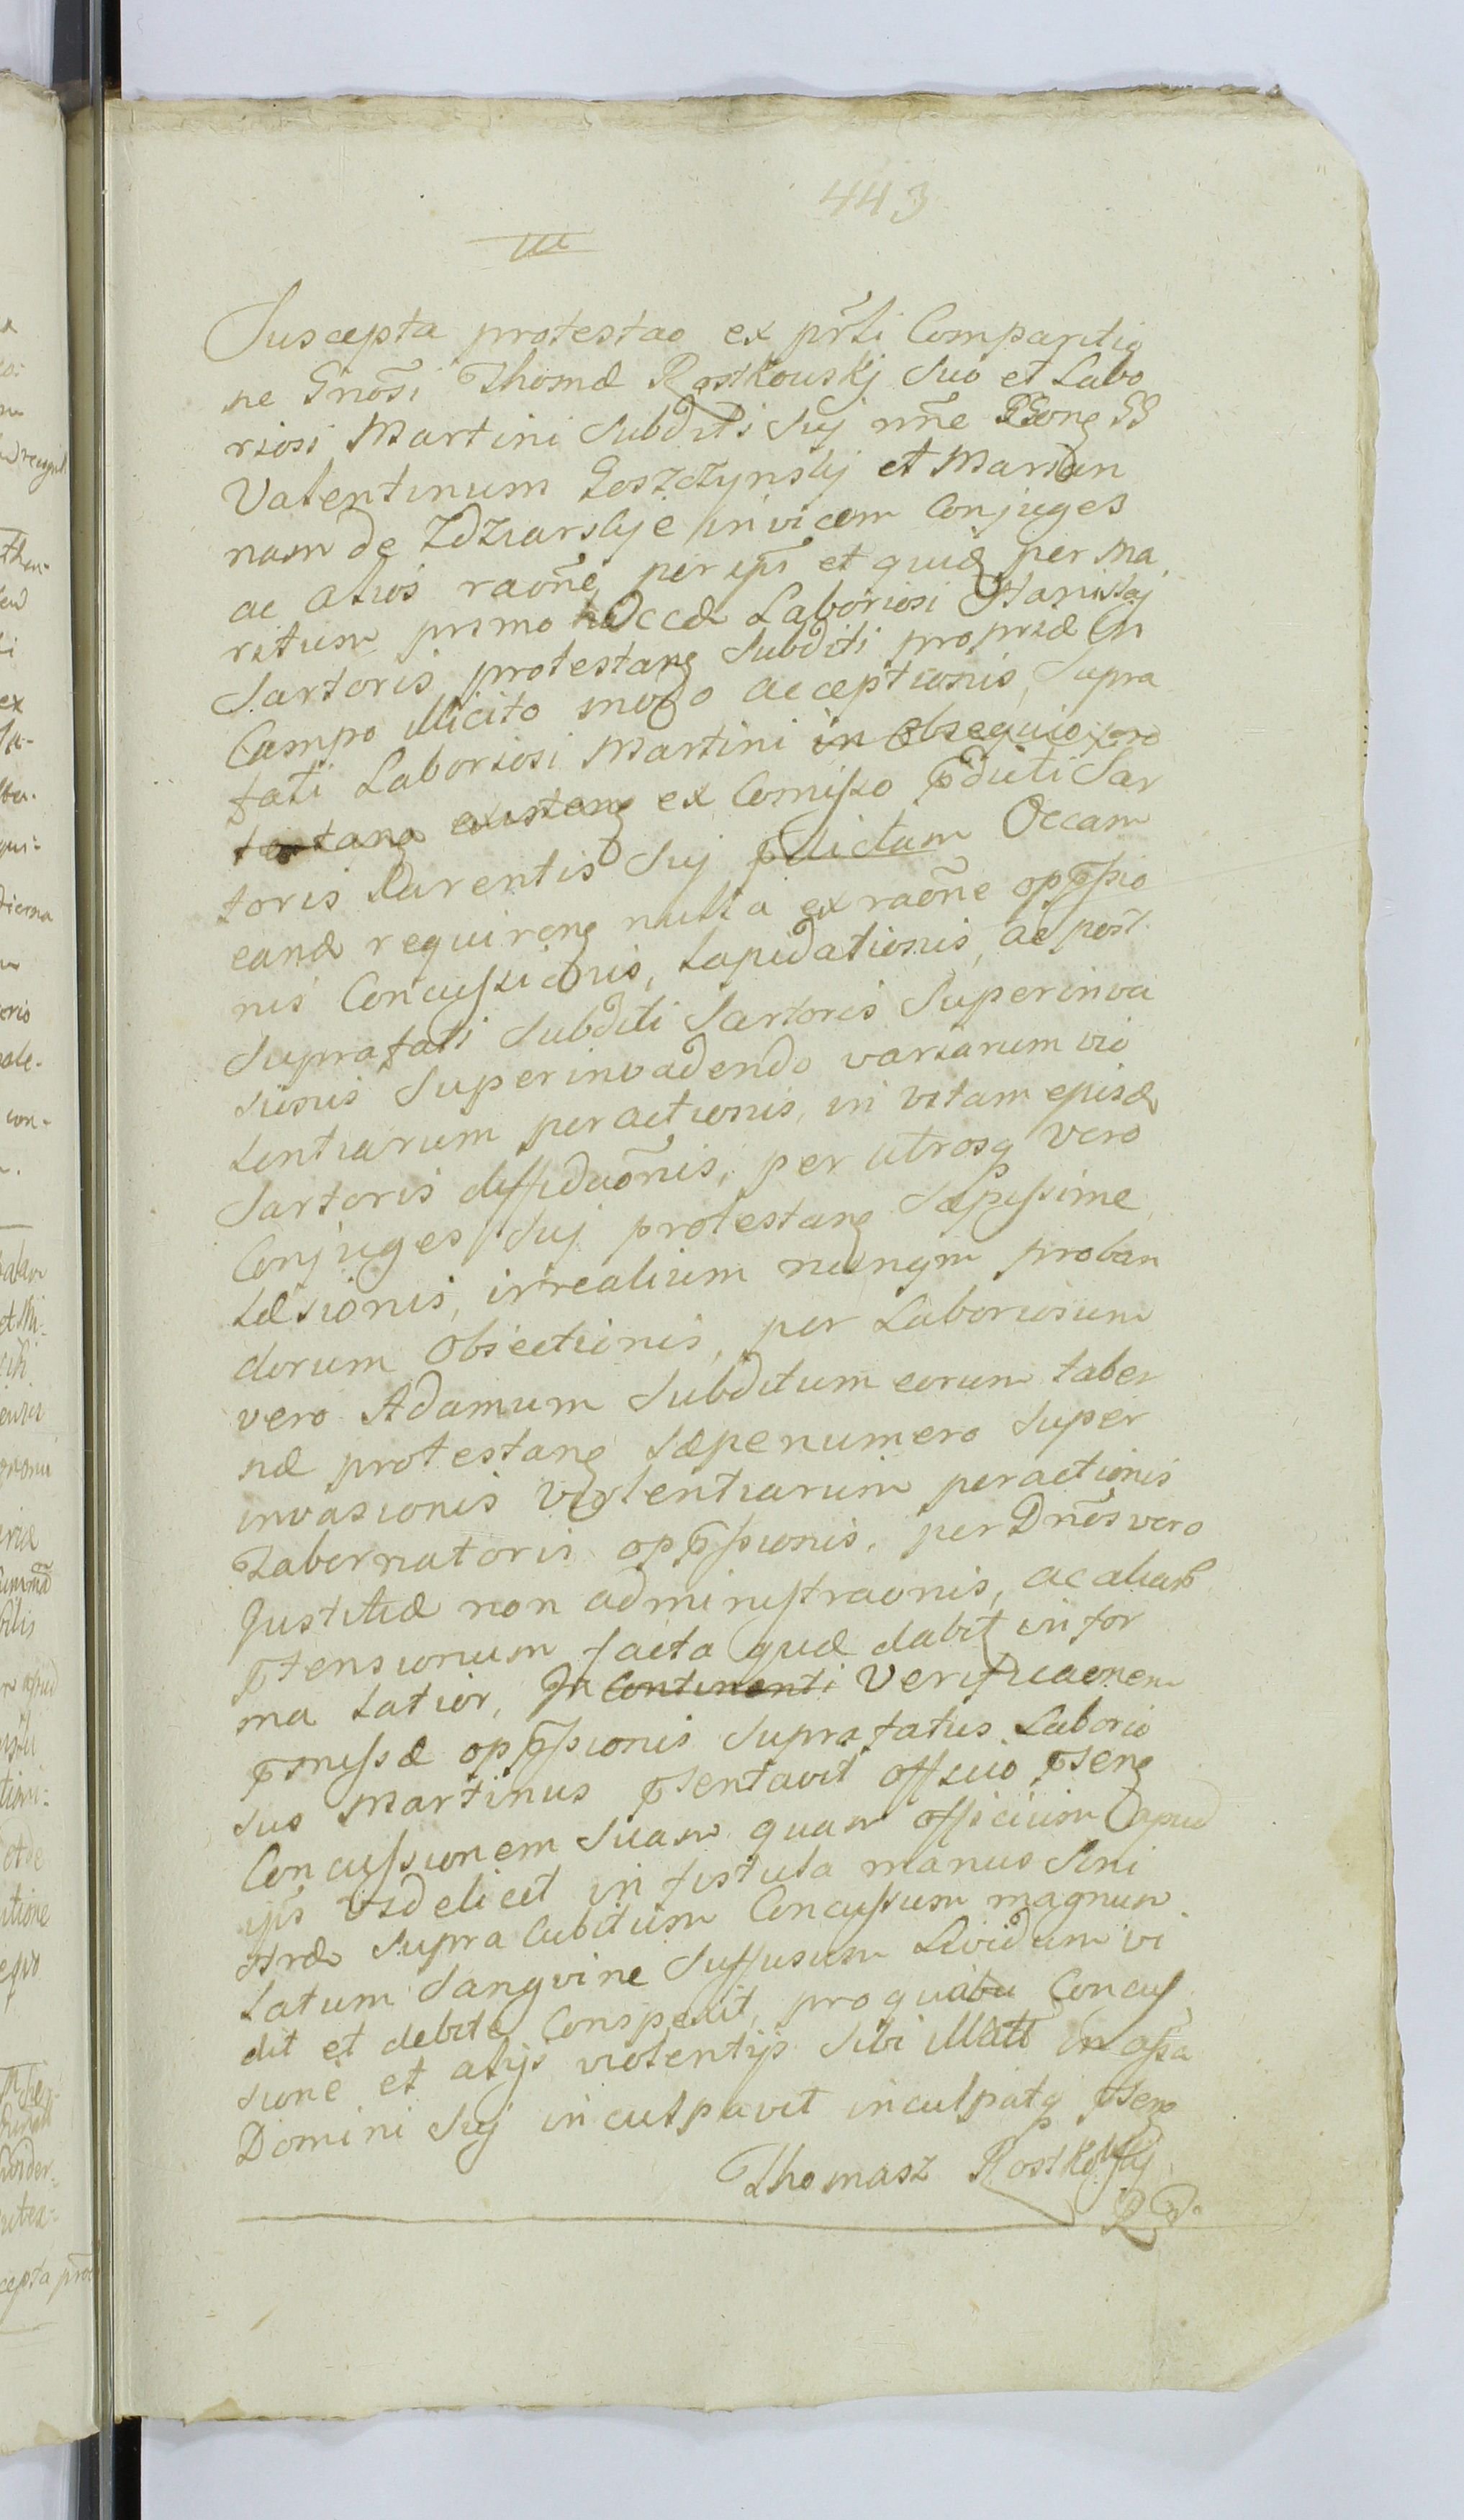 443
III
Suscepta protestao ex pr̃li Comparitio
ne Gnõsi Thomæ Rostkouskj suo et Labo
riosi Martini subditi suj nñe Gsong GG
Valentinum Goszczynskj et Marian
nam de Zdziarskie invicem Conjuges
ac alios raõne per ipsũ et quidę per ma
ritum primo Occæ Laboriosi Stanislaj
Sartoris protestang subditi propriæ in
Campo illicito modo acceptionis, supra
fati Laboriosi Martini in obsequio pro
testang existeng ex Comisso p̃dicti Sar
toris Parentis suj p̃dictam Occam
eandæ requireng nulla ex raõne opp̃sio
nis Concussionis, lapidationis, ac post
suprafati subditi Sartoris superinva
sionis superinvadendo variarum vio
lentiarum peractionis, in vitam ejusdę
Sartoris diffidaõnis, per utrosq vero
Conjuges suj protestang sæpissime
læsionis, irrealium nunqm proban
dorum objectionis, per Laboriosum
vero Adamum subditum eorum taber
næ protestang sæpenumero super
invasionis violentiarum peractionis
Tabernatoris opp̃sionis, per Dnõs vero
Justitiæ non administraonis, ac aliarũ
p̃tensionum facta quæ dabit in for
ma latior, In Continenti Verificaonem
p̃missæ opp̃sionis suprafatus Laborio
sus Martinus p̃sentavit officio p̃seng
Concussionem suam quam officium apud
ipũ videlicet in fistula manus sini
stræ supra Cubitum Concussum magnum
latum sangvine suffusum Lividum vi
dit et debite Conspexit, pro quibu Concus
sione et alijs violentijs sibi illatĩ in assa
Domini suj inculpavit inculpatq p̃seng
Thomasz Rostkowskj